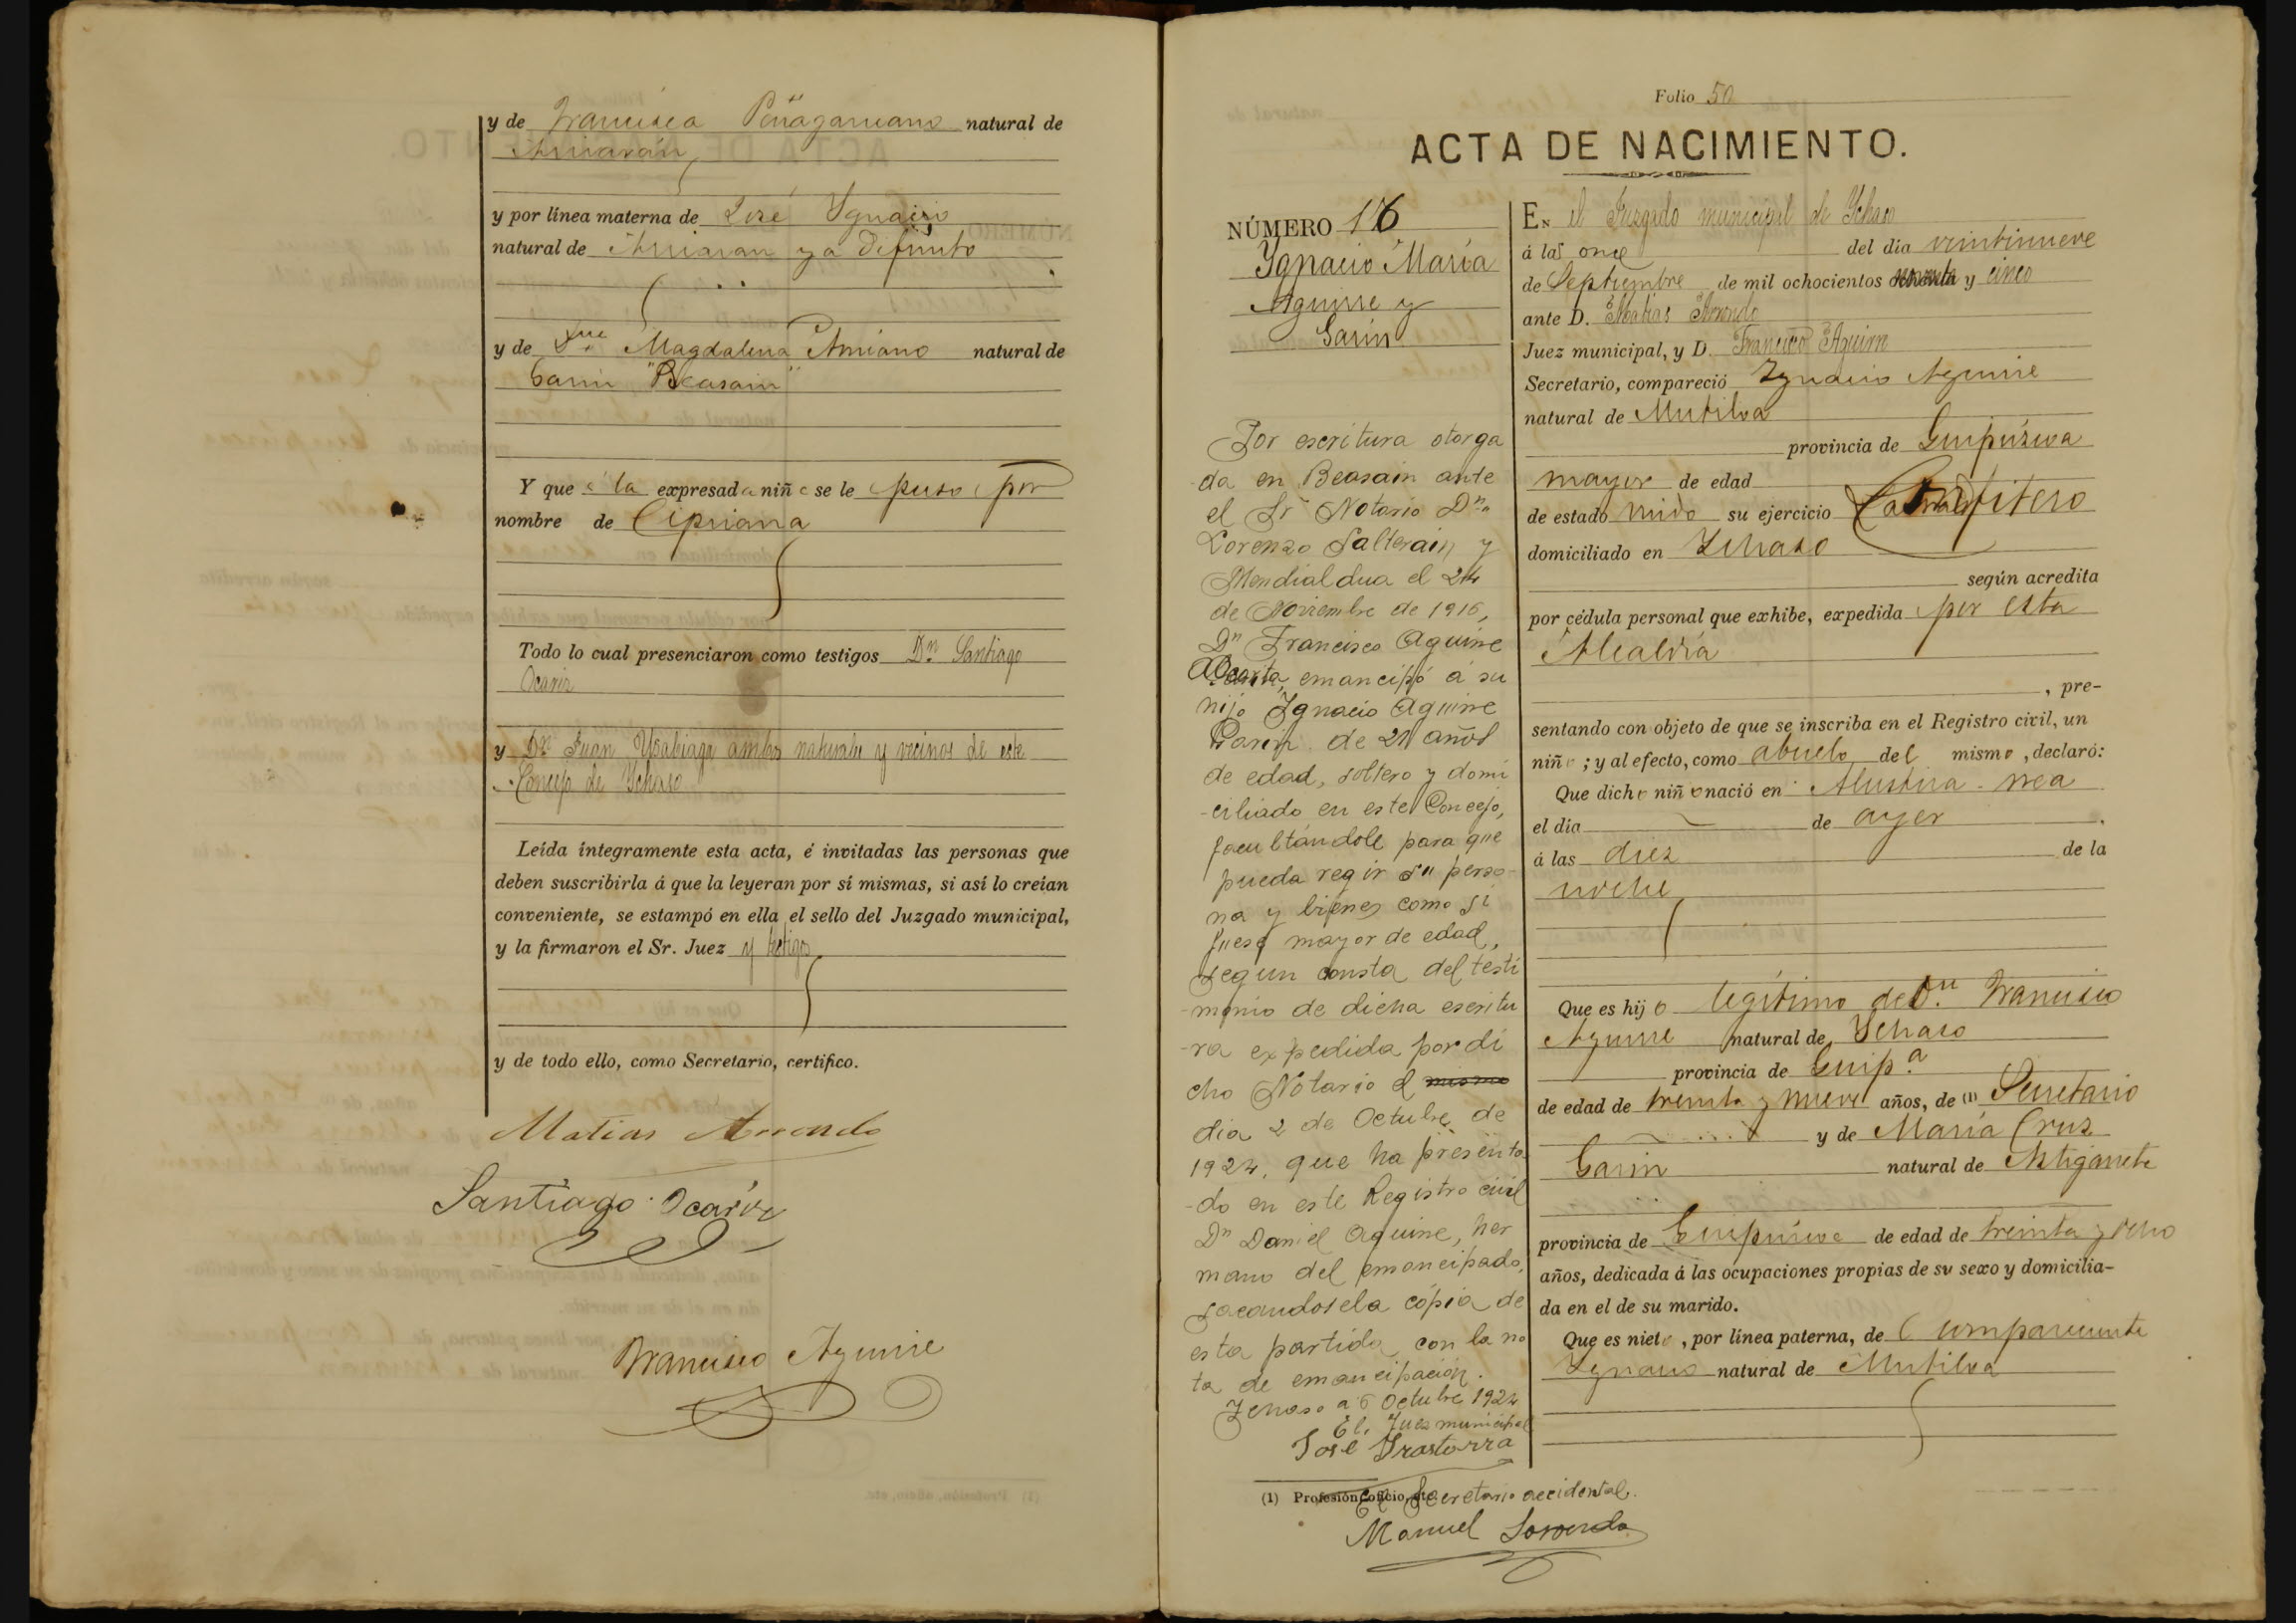 y de Francisca Peñagaricano natural de
Amiarán
y por línea materna de José Ygnacio
natural de Amiaran ya difunto
y de Dna Magdalena Amiano natural de
Garin "Beasain"
Y que á la expresada niña se le puso por
nombre de Cipriana
Todo lo cual presenciaron como testigos Dn. Santiago
Ocariz
y Dn Juan Ysabiaga ambos naturales y vecinos de este
Concejo de Ychaso
Leída íntegramente esta acta, é invitadas las personas que
deben suscribirla á que la leyeran por sí mismas, si así lo creían
conveniente, se estampó en ella el sello del Juzgado municipal,
y la firmaron el Sr. Juez y testigos
y de todo ello, como Secretario, certifico.
Matias
Santiago Ocáriz
Francisco Aguirre
Folio 50
ACTA DE NACIMIENTO.
NÚMERO 16
Ygnacio María
Aguirre y
Garin
Por escritura otorga
da en Beasain ante
el Sr Notario Dn.
Lorenzo Salterain y
Mendialdua el 24
de Noviembre de 1916,
Dn Francisco Aguirre
emancipó á su
hijo Ignacio Aguirre
Garin de 21 años
de edad, soltero y domi
-ciliado en este Concejo,
facultándole para que
pueda regir su perso-
na y bienes como si
fuese mayor de edad,
segun consta del testi
-monio de dicha escritu
-ra expedida por di
cho Notario el mismo
dia 2 de Octubre de
1924, que ha presenta
-do en este Registro civil
Dn Daniel Aguirre, her
mano del emancipado,
sacandosela cópia de
esta partida con la no
ta de emancipación.
Ychaso a 6 Octubre 1924
El Juez municipal
José Irastorza
El Secretario accidental.
Manuel
(1) Profesión, oficio, etc.
En el Juzgado municipal de Ychaso
á las once del día veintinueve
de Septiembre de mil ochocientos noventa y cinco
ante D. Matias
Juez municipal, y D. Francisco Aguirre
Secretario, compareció Ygnacio Aguirre
natural de Mutiloa
provincia de Guipúzcoa
mayor de edad
de estado viudo su ejercicio Confitero
domiciliado en Ychaso
según acredita
por cédula personal que exhibe, expedida por esta
Alcaldía
, pre-
sentando con objeto de que se inscriba en el Registro civil, un
niño; y al efecto, como abuelo del mismo, declaró:
Que dicho niño nació en
el día de ayer
á las diez de la
noche
Que es hijo legítimo de Dn. Francisco
Aguirre natural de Ychaso
provincia de Guip.a
de edad de treinta y nueve años, de (1) Secretario
y de María Cruz
Garin natural de Astigarreta
provincia de Guipúzcoa de edad de treinta y ocho
años, dedicada á las ocupaciones propias de su sexo y domicilia-
da en el de su marido.
Que es nieto, por línea paterna, de Compareciente
Ygnacio natural de Mutiloa